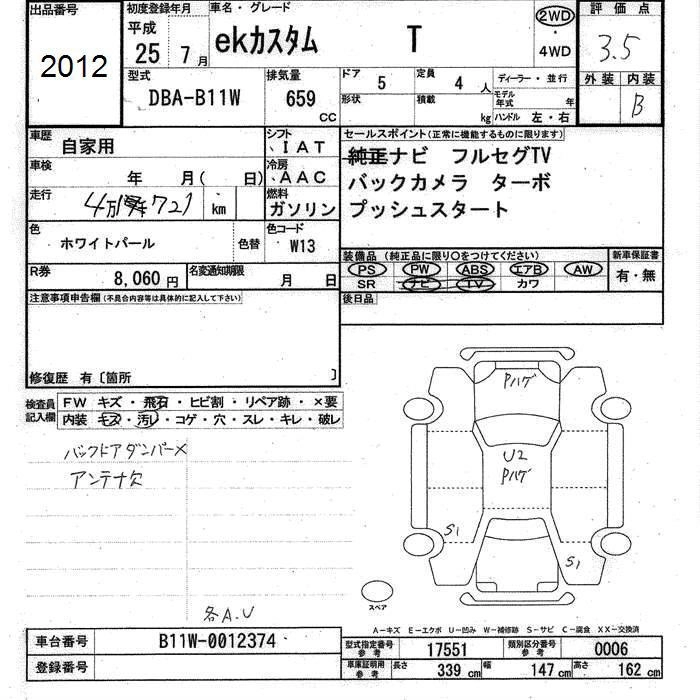 出品番号
2012
初度登録年月
平成
25 7 月
車名・グレード
ekカスタム T
2WD
・
4WD
評価点
3.5
外装 内装
B
型式
DBA-B11W
排気量
659 CC
ドア 5
定員 4 人
形状
積載 kg
ディーラー・並行
モデル年式 年
ハンドル 左・右
車歴
自家用
シフト
、IAT
車検
年 月( 日)
冷房
、AAC
走行
km
燃料
ガソリン
色
ホワイトパール
色替
色コード
W13
R券
8,060 円
名変通知期限
月 日
セールスポイント(正常に機能するものに限ります)
純正ナビ フルセグTV
バックカメラ ターボ
プッシュスタート
装備品(純正品に限り○をつけてください)
PS PW ABS エアB AW
SR ナビ TV カワ
新車保証書
有・無
後日品
注意事項申告欄(不具合内容等は具体的に記入して下さい)
修復歴 有〔箇所 〕
検査員
記入欄
FW キズ・飛石・ヒビ割・リペア跡・×要
内装 キズ・汚レ・コゲ・穴・スレ・キレ・破レ
バックドアダンパー×
アンテナ欠
各A.U
Pハゲ
U2
Pハゲ
S1
S1
スペア
A-キズ E-エクボ U-凹み W-補修跡 S-サビ C-腐食 XX-交換済
車台番号 B11W-0012374
登録番号
型式指定番号
参考
17551
類別区分番号
参考
0006
車庫証明用
参考
長さ 339 cm 幅 147 cm 高さ 162 cm